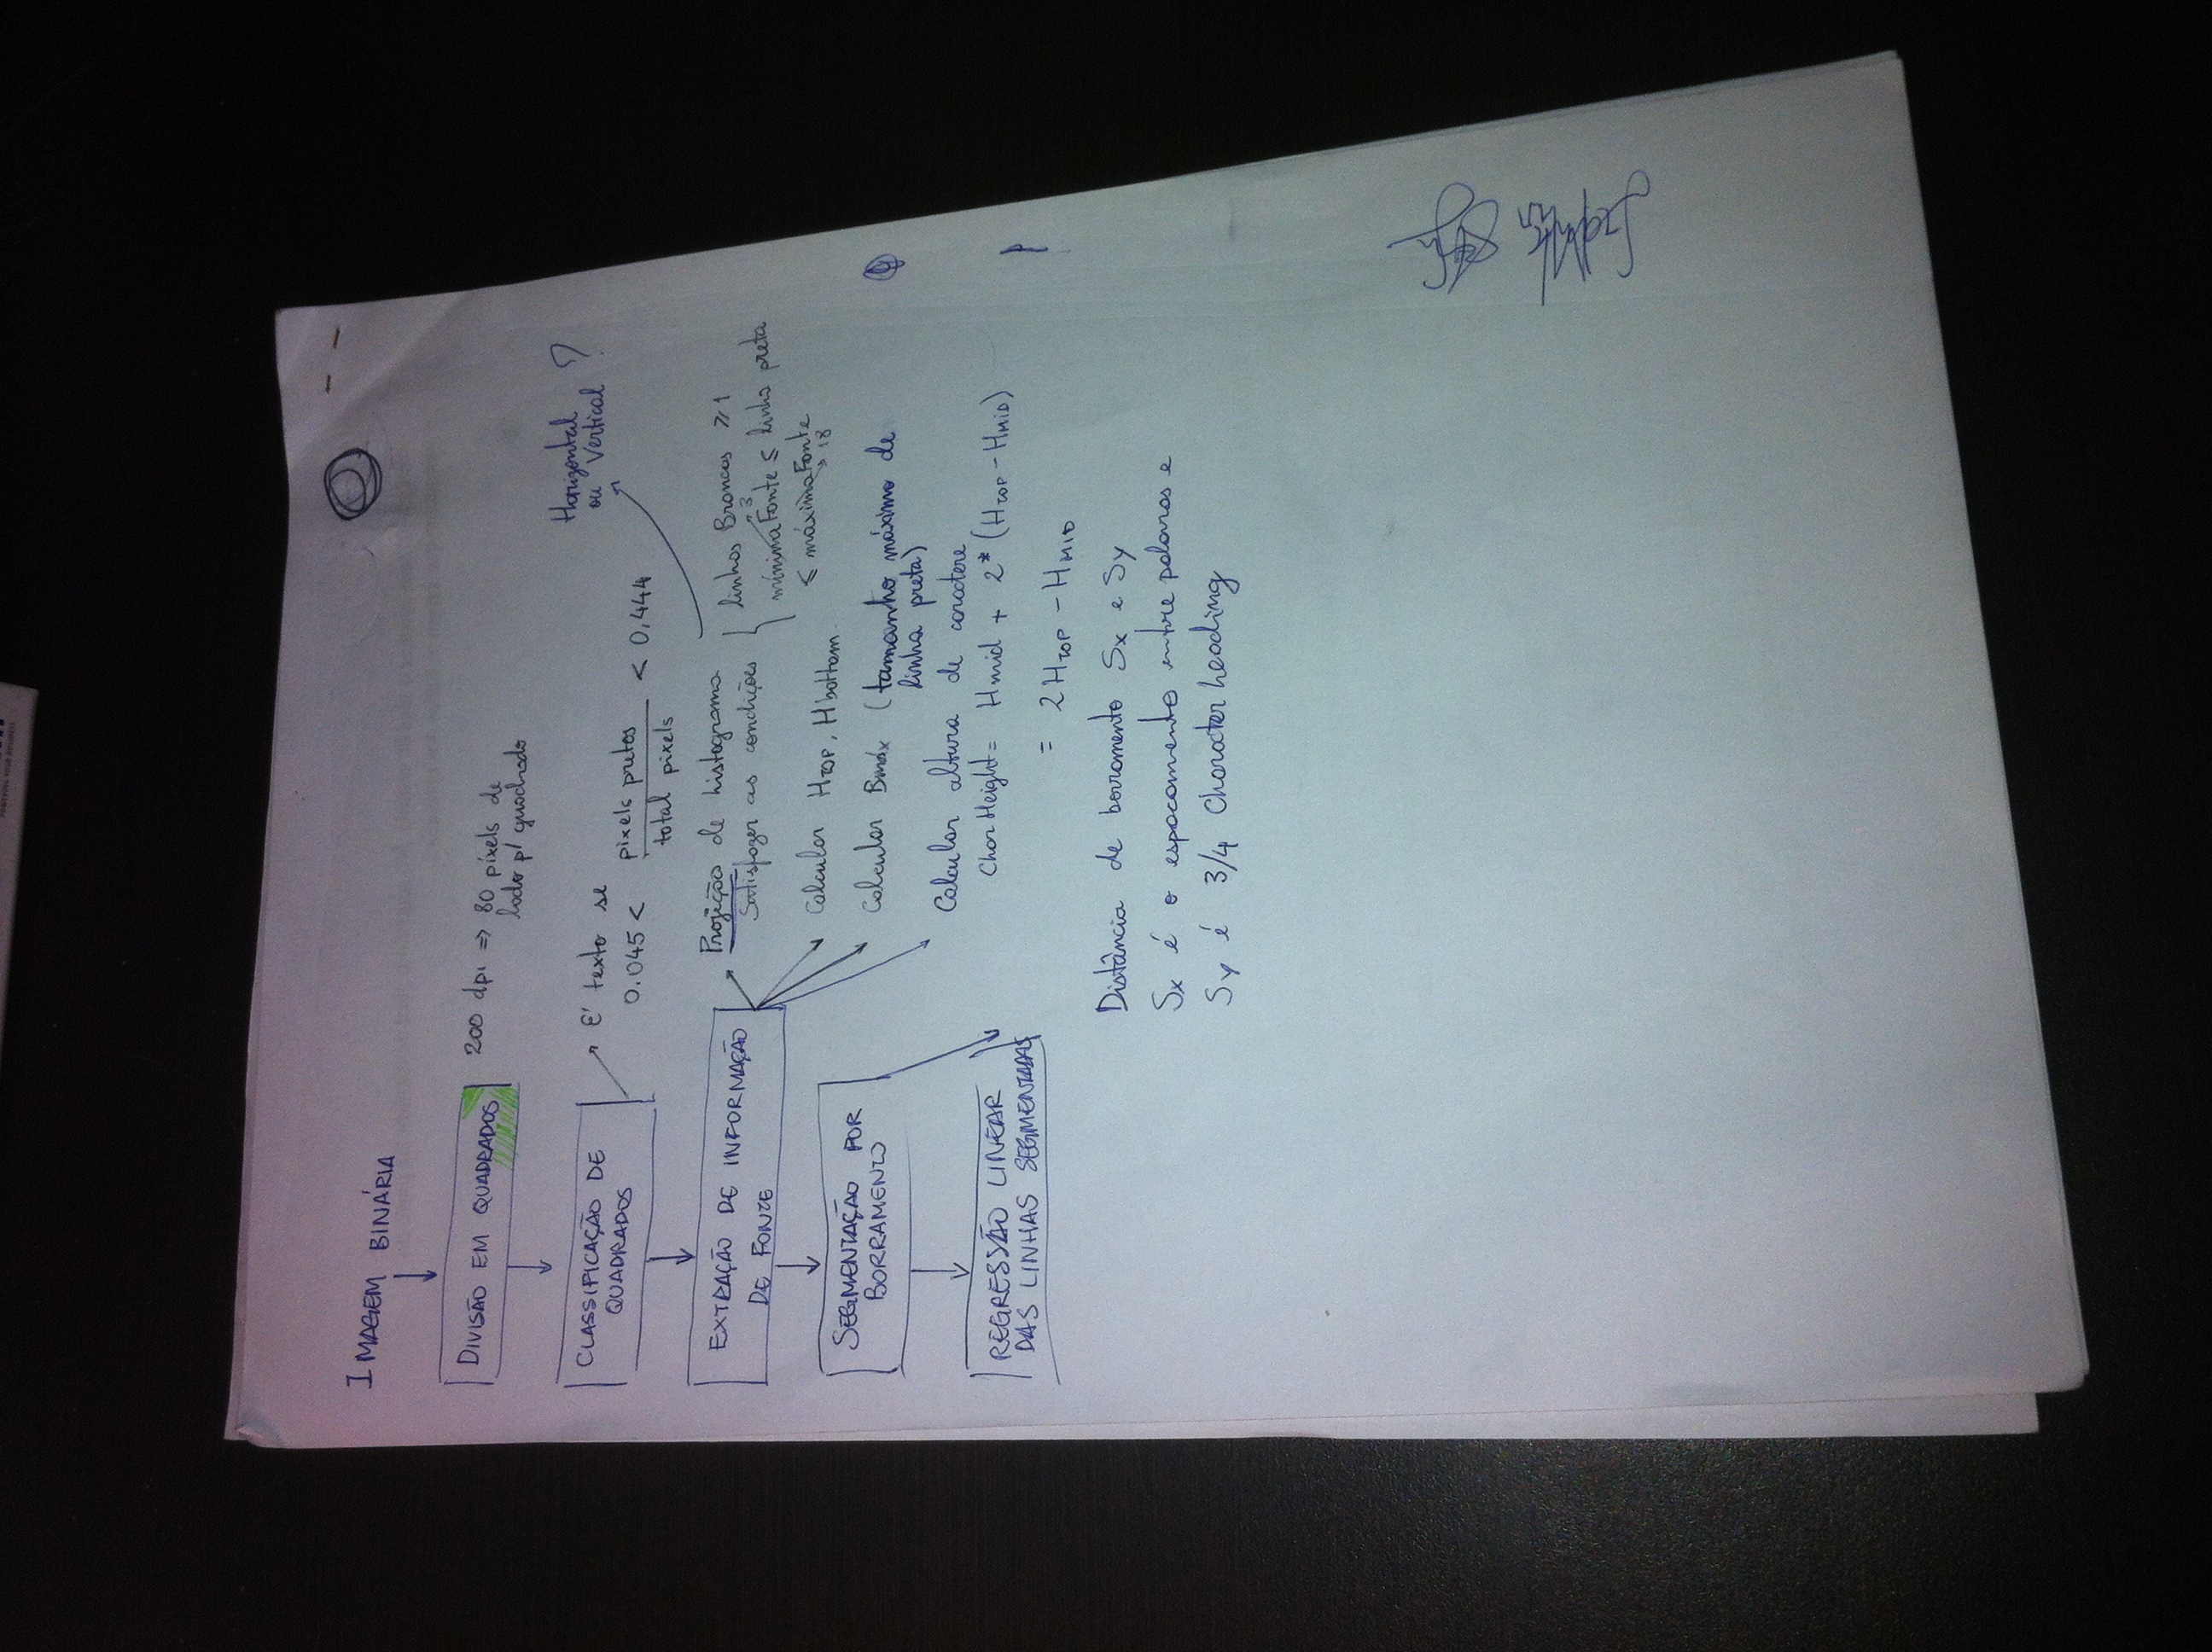 POWERING YOUR BUSINESS
IMAGEM BINÁRIA
DIVISÃO EM QUADRADOS
200 dpi => 80 pixels de
lado p/ quadrado
CLASSIFICAÇÃO DE
QUADRADOS
É texto se
0.045 < pixels pretos / total pixels < 0,444
Horizontal
ou Vertical ?
EXTRAÇÃO DE INFORMAÇÃO
DE FONTE
Projeção de histograma
Satisfazer as condições
linhas Brancas ≥ 1
3
mínimaFonte ≤ linha preta
≤ máximaFonte
18
Calcular HTOP, Hbottom
Calcular Bmáx (tamanho máximo de
linha preta)
Calcular altura de caractere
CharHeight = Hmid + 2* (HTOP - HMID)
= 2HTOP - HMID
SEGMENTAÇÃO POR
BORRAMENTO
REGRESSÃO LINEAR
DAS LINHAS SEGMENTADAS
Distância de borramento Sx e Sy
Sx é o espaçamento entre palavras e
Sy é 3/4 Character heading